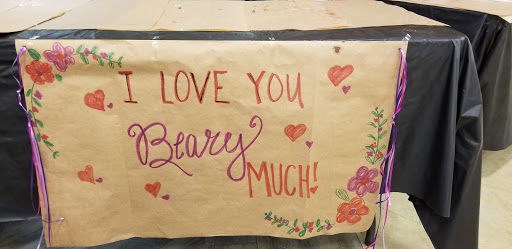 I LOVE YOU
Beary
MUCH!